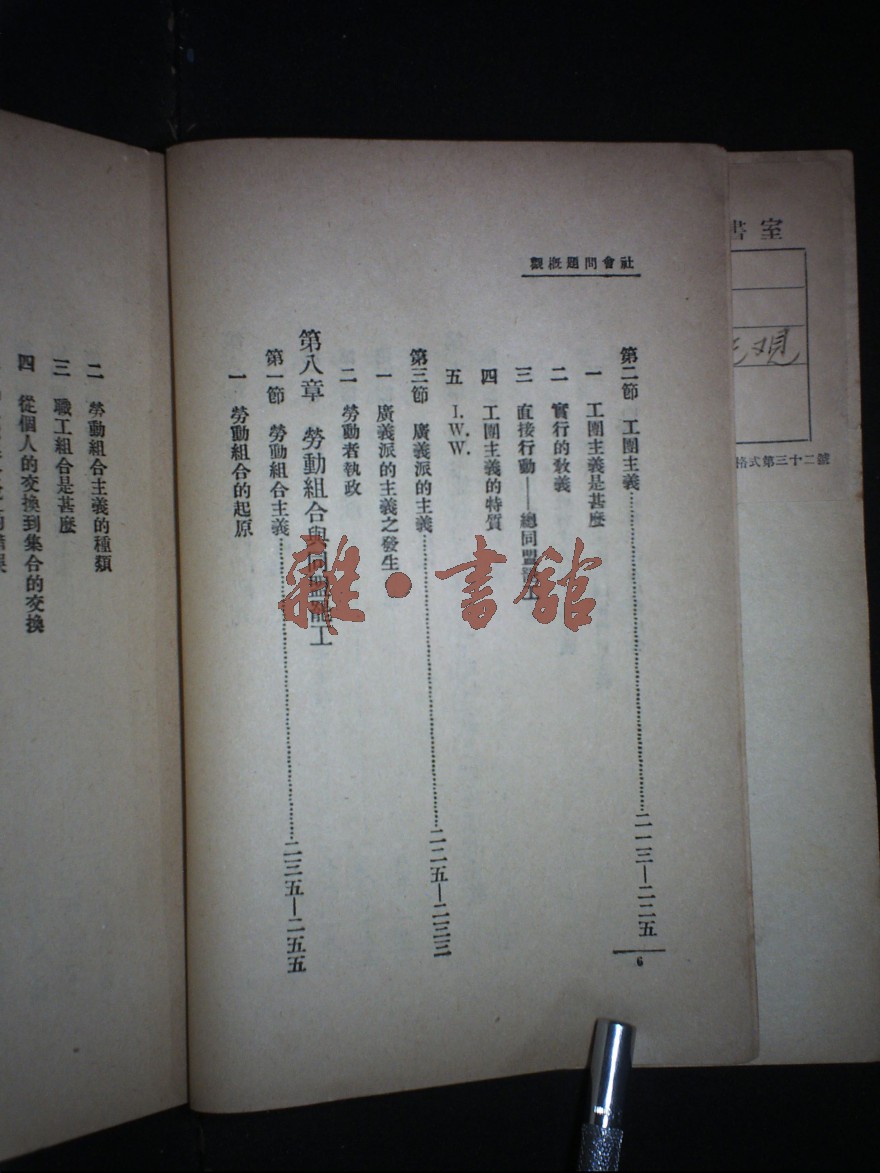 社會問題概觀
第二節 工團主義……二一三—二二五
一 工團主義是甚麼
二 實行的教義
三 直接行動——總同盟罷工
四 工團主義的特質
五 I. W. W.
第三節 廣義派的主義……二二五—二三三
一 廣義派的主義之發生
二 勞動者執政
第八章 勞動組合與同盟罷工
第一節 勞動組合主義……二三五—二五五
一 勞動組合的起原
6
二 勞動組合主義的種類
三 職工組合是甚麼
四 從個人的交換到集合的交換
雜·書館
書室
格式第三十二號